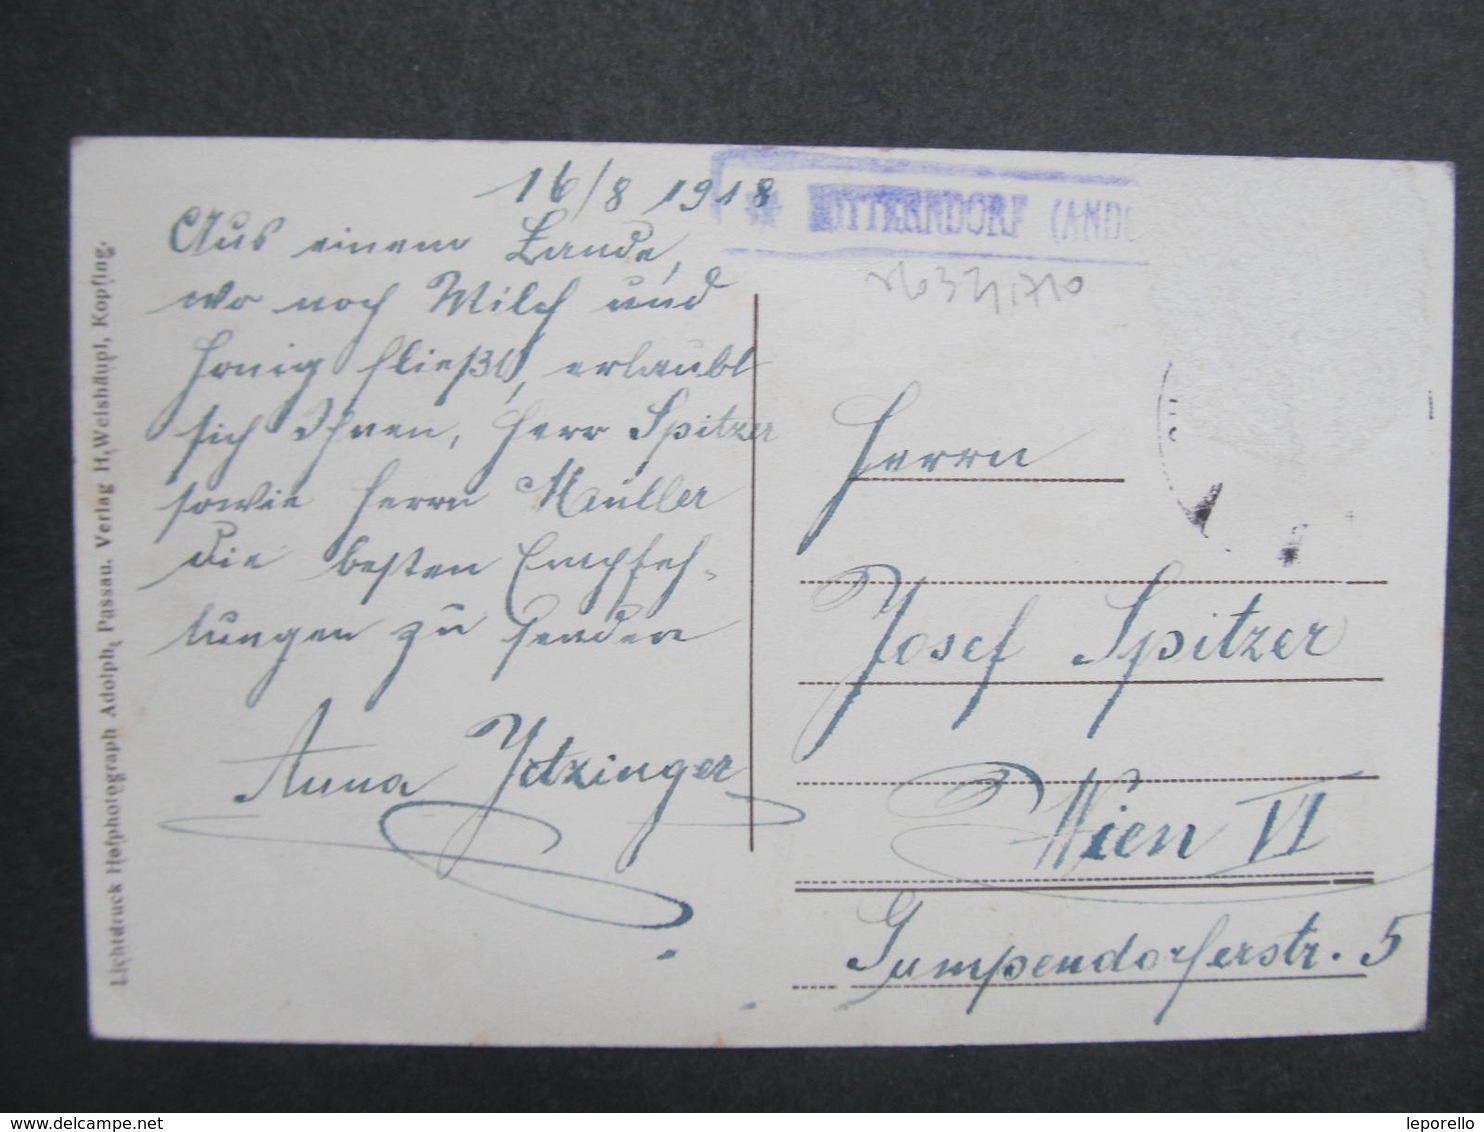 16/8 1918
Aus einem Lande,
wo noch Milch und
Honig fließt, erlaubt
sich Ihnen, Herr Spitzer
sowie Herrn Müller
die besten Empfeh-
lungen zu senden
Anna Itzinger
TTERNDORF (AND
Herrn
Josef Spitzer
Wien VI
Gumpendorferstr. 5
Lichtdruck Hofphotograph Adolph, Passau. Verlag H. Weishäupl, Kopfing.
leporello